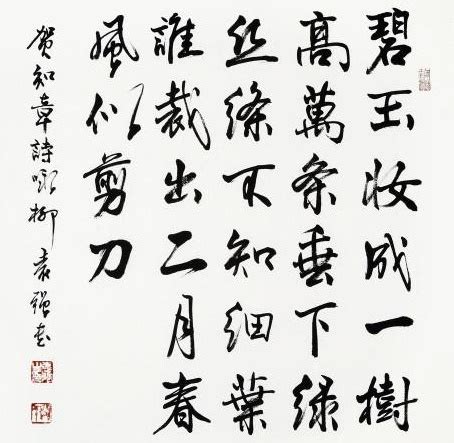 碧玉妆成一樹
高萬条垂下绿
丝绦不知细葉
誰裁出二月春
風似剪刀
贺知章詩咏柳 袁强书